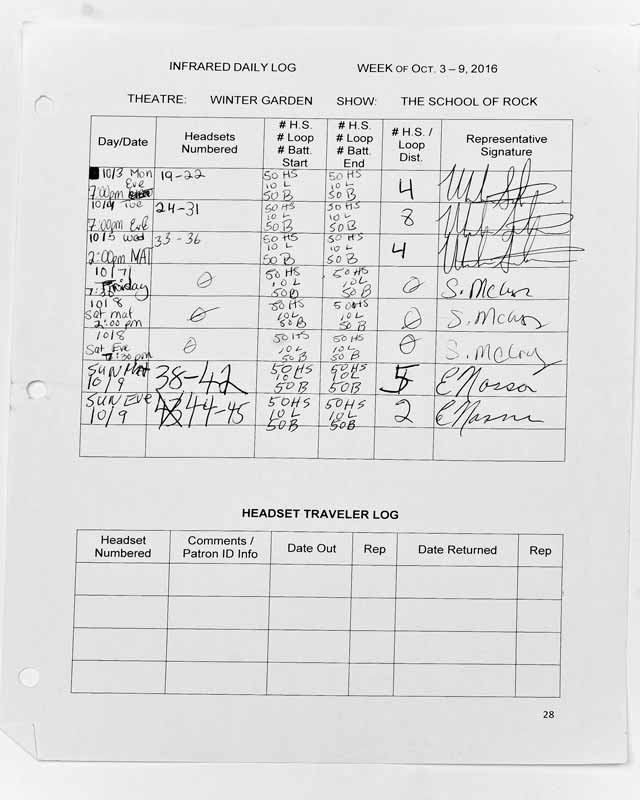 INFRARED DAILY LOG WEEK OF OCT. 3 – 9, 2016
THEATRE: WINTER GARDEN SHOW: THE SCHOOL OF ROCK
Day/Date Headsets Numbered # H.S. # Loop # Batt. Start # H.S. # Loop # Batt. End # H.S. / Loop Dist. Representative Signature
10/3 Mon Eve 7:00pm 19-22 50 HS 10 L 50 B 50 HS 10 L 50 B 4
10/4 Tue 7:00pm Eve 24-31 50 HS 10 L 50 B 50 HS 10 L 50 B 8
10/5 Wed 2:00pm MAT 33-36 50 HS 10 L 50 B 50 HS 10 L 50 B 4
10/7 Friday 7:30 0 50 HS 10 L 50 B 50 HS 10 L 50 B 0 S. McCroy
10/8 Sat mat 2:00 pm 0 50 HS 10 L 50 B 50 HS 10 L 50 B 0 S. McCroy
10/8 Sat Eve 7:30 pm 0 50 HS 10 L 50 B 50 HS 10 L 50 B 0 S. McCroy
SUN Mat 10/9 38-42 50 HS 10 L 50 B 50 HS 10 L 50 B 5
SUN Eve 10/9 44-45 50 HS 10 L 50 B 50 HS 10 L 50 B 2
HEADSET TRAVELER LOG
Headset Numbered Comments / Patron ID Info Date Out Rep Date Returned Rep
28